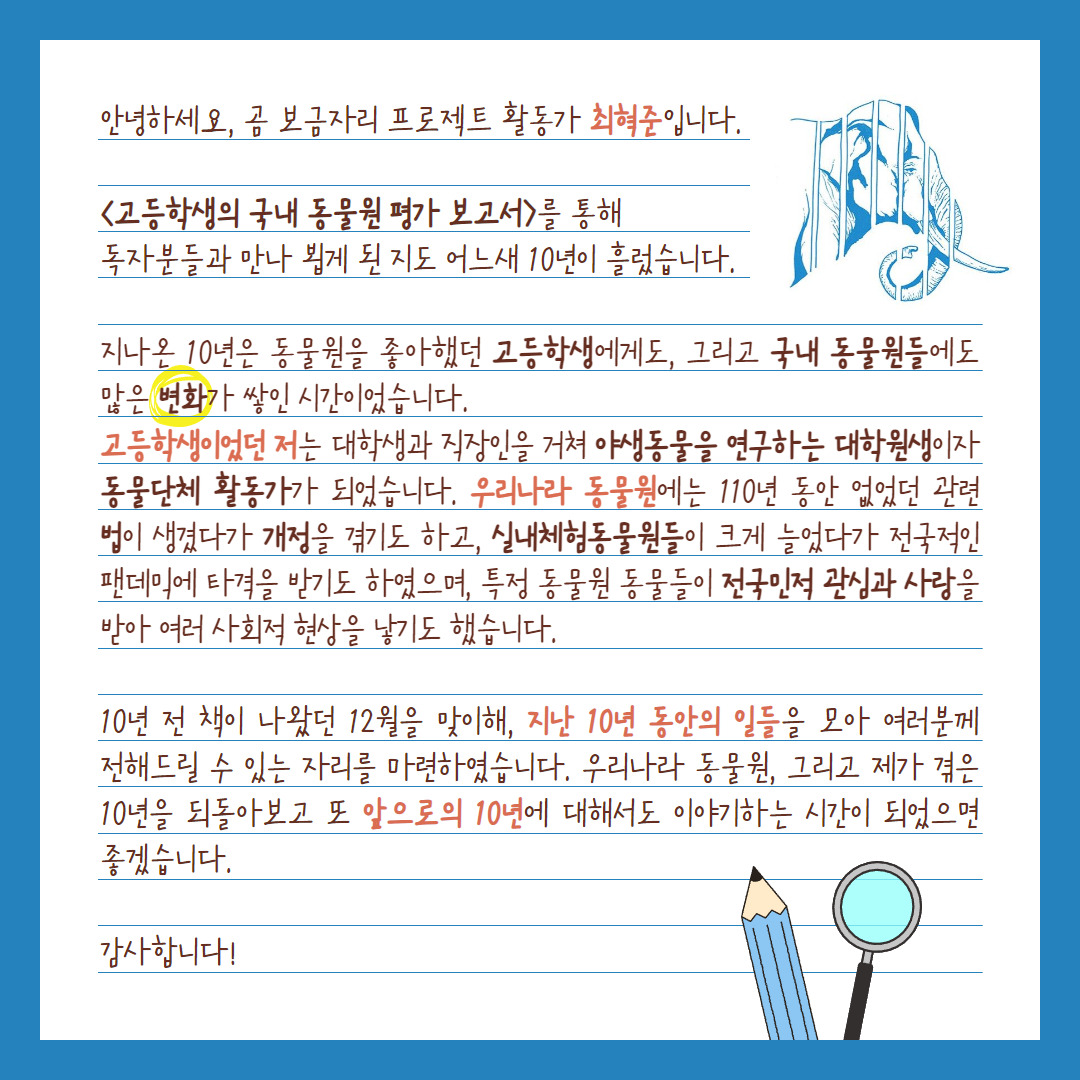 안녕하세요, 곰 보금자리 프로젝트 활동가 최혁준입니다.
<고등학생의 국내 동물원 평가 보고서>를 통해
독자분들과 만나 뵙게 된 지도 어느새 10년이 흘렀습니다.
지나온 10년은 동물원을 좋아했던 고등학생에게도, 그리고 국내 동물원들에도
많은 변화가 쌓인 시간이었습니다.
고등학생이었던 저는 대학생과 직장인을 거쳐 야생동물을 연구하는 대학원생이자
동물단체 활동가가 되었습니다. 우리나라 동물원에는 110년 동안 없었던 관련
법이 생겼다가 개정을 겪기도 하고, 실내체험동물원들이 크게 늘었다가 전국적인
팬데믹에 타격을 받기도 하였으며, 특정 동물원 동물들이 전국민적 관심과 사랑을
받아 여러 사회적 현상을 낳기도 했습니다.
10년 전 책이 나왔던 12월을 맞이해, 지난 10년 동안의 일들을 모아 여러분께
전해드릴 수 있는 자리를 마련하였습니다. 우리나라 동물원, 그리고 제가 겪은
10년을 되돌아보고 또 앞으로의 10년에 대해서도 이야기하는 시간이 되었으면
좋겠습니다.
감사합니다!